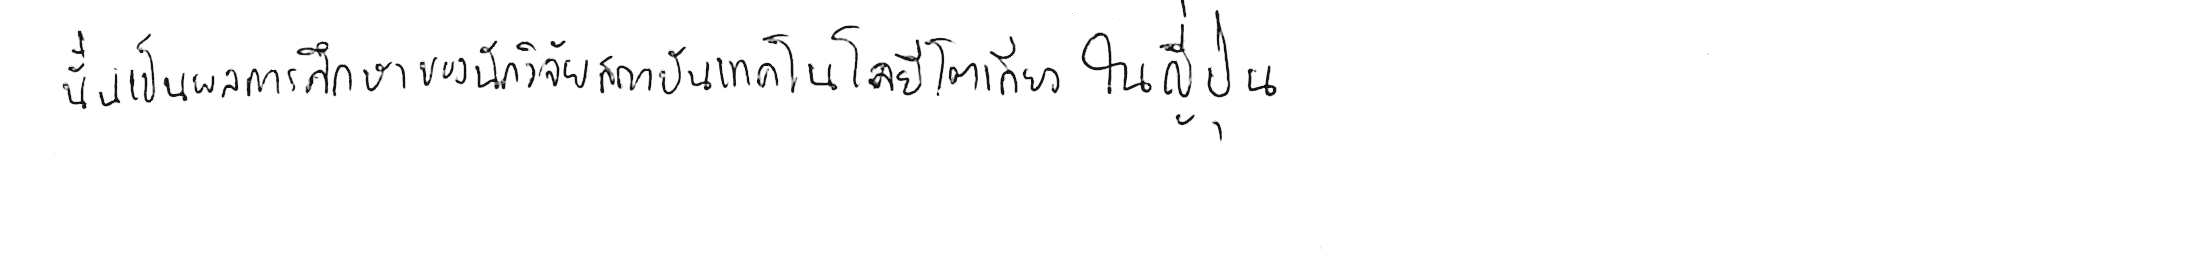 นั่นเป็นผลการศึกษาของนักวิจัยสถาบันเทคโนโลยีโตเกียว ในญี่ปุ่น